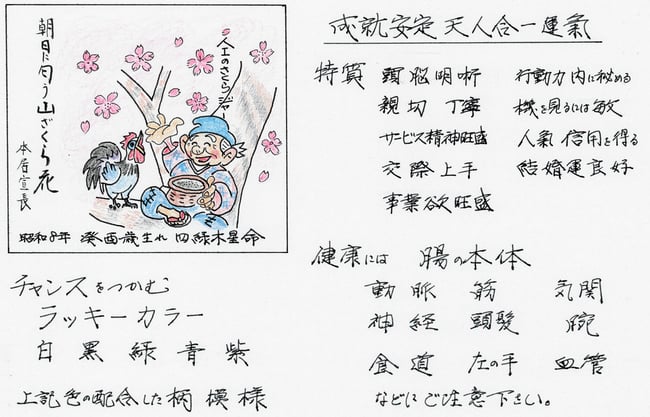 朝日に匂う山ざくら花
本居宣長
人工のさくらジャー
昭和8年 癸酉歳生れ 四緑木星命
チャンスをつかむ
ラッキーカラー
白 黒 緑 青 紫
上記色の配合した柄模様
成就安定 天人合一運氣
特質 頭脳明晰 行動力内に秘める
親切 丁寧 機を見るには敏
サービス精神旺盛 人氣 信用を得る
交際上手 結婚運良好
事業欲旺盛
健康には 腸の本体
動脈 筋 気関
神経 頭髪 腕
食道 左の手 血管
などにご注意下さい。